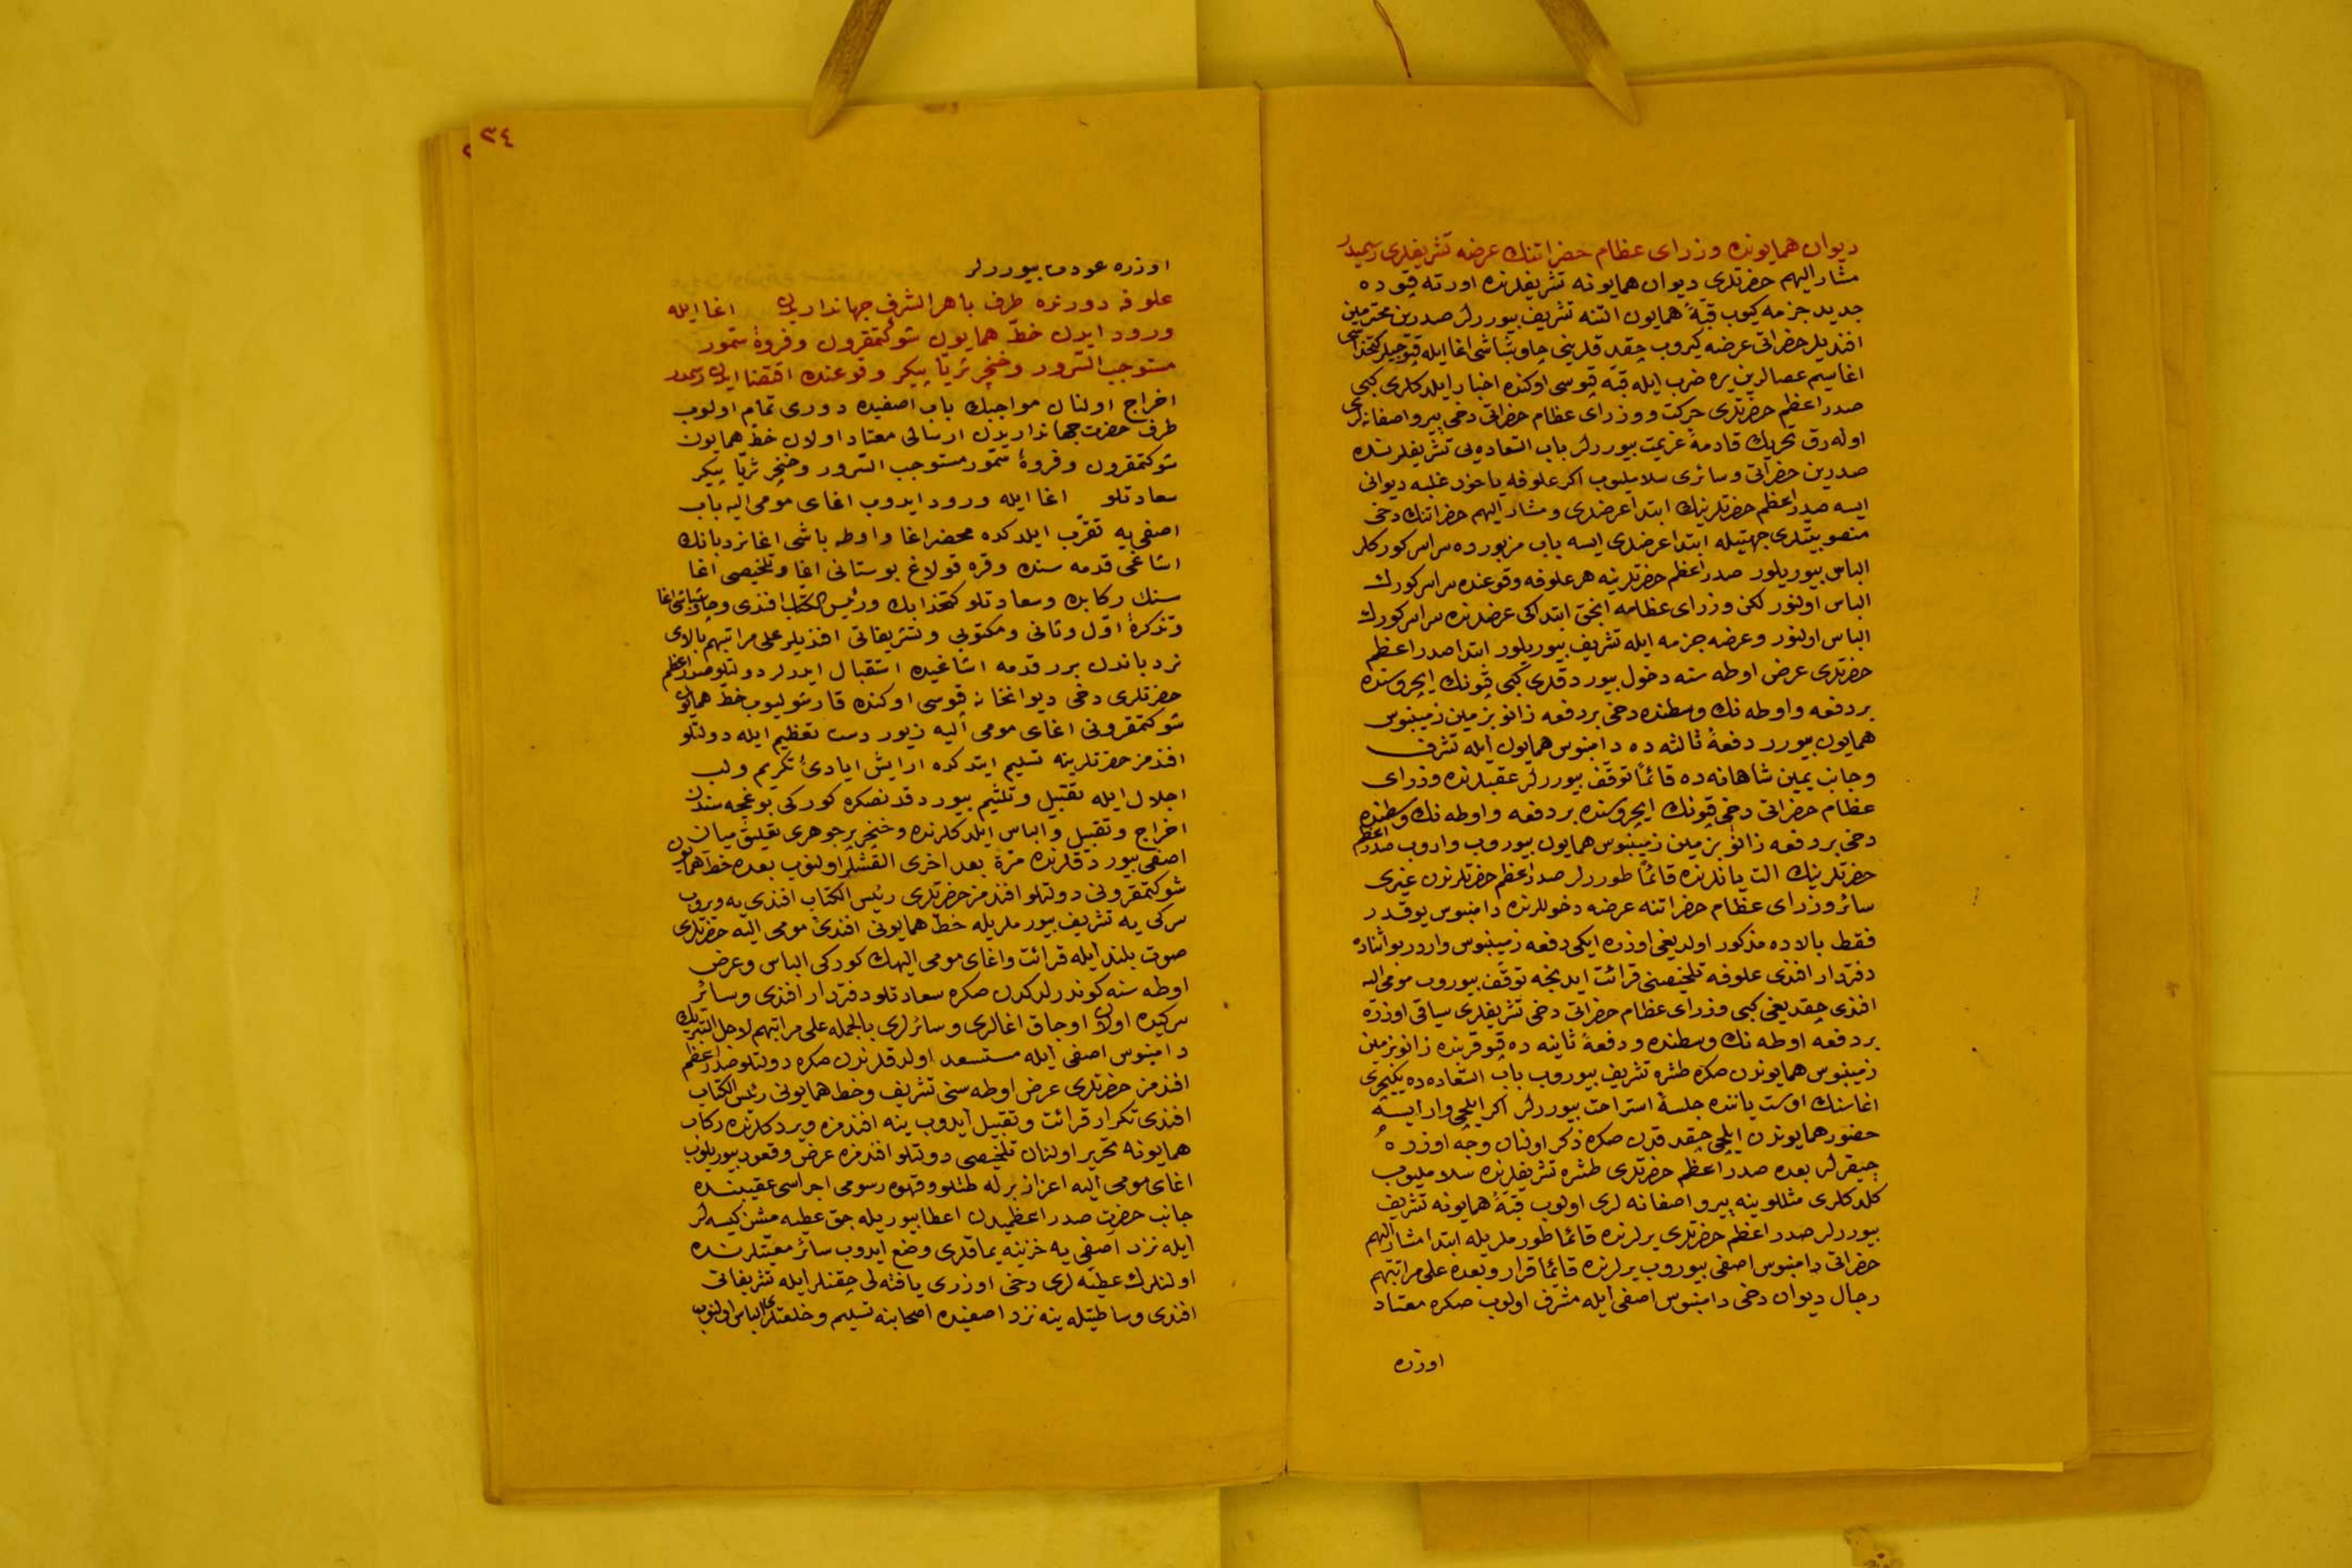 ديوان همايونده وزراى عظام حضراتنك عرضه تشريفلرى رسميدر
مشار اليهم حضرتلرى ديوان همايونه تشريفلرنده اورته قپوده
جديد جزمه كيوب قبهٔ همايون التنه تشريف بيوررلر صدرين محترمين
افنديلر حضراتى عرضه كيروب چقدقلرينى چاوشباشى اغا ايله قپوجيلر كتخداسى
اغا سيم عصالرين يره ضرب ايله قبه قپوسى اوكنده اخبار ايلدكلرى كبى
صدر اعظم حضرتلرى حركت و وزراى عظام حضراتى دخى پيرو اصفانه لرى
اوله رق تحريك قادمهٔ عزيمت بيوررلر باب السعاده يى تشريفلرنده
صدرين حضراتى وسائرى سلاملیوب اكر علوفه ياخود غلبه ديوانى
ايسه صدر اعظم حضرتلرينك ابتدا عرضلرى ومشار اليهم حضراتنك دخى
منصوبيتلرى جهتيله ابتدا عرضلرى ايسه باب مزبورده سراسر كوركلر
الباس بيوريلور صدر اعظم حضرتلرينه هر علوفه وقوعنده سراسر كورك
الباس اولنور لكن وزراى عظامه انجق ابتداكى عرضلرنده سراسر كورك
الباس اولنور وعرضه جزمه ايله تشريف بيوريلور ابتدا صدر اعظم
حضرتلرى عرض اوطه سنه دخول بيوردقلرى كبى قپونك ايچروسنده
بر دفعه واوطه نك وسطنده دخى بر دفعه زانو بزمين زمينبوس
همايون بيورر دفعهٔ ثالثه ده دامنبوس همايون ايله تشرف
وجانب يمين شاهانه ده قائماً توقف بيوررلر عقبلرنده وزراى
عظام حضراتى دخى قپونك ايچروسنده بر دفعه واوطه نك وسطنده
دخى بر دفعه زانو بزمين زمينبوس همايون بيوروب واروب صدر اعظم
حضرتلرينك الت يانلرنده قائماً طوررلر صدر اعظم حضرتلرندن غيرى
سائر وزراى عظام حضراتنه عرضه دخوللرنده دامنبوس يوقدر
فقط بالاده مذكور اولديغى اوزره ايكى دفعه زمينبوس واردر بو اثناده
دفتردار افندى علوفه تلخيصنى قرائت ايدنجه توقف بيوروب مومى اليه
افندى چقديغى كبى وزراى عظام حضراتى دخى تشريفلرى سياقى اوزره
بر دفعه اوطه نك وسطنده ودفعهٔ ثانيه ده قپو قربنده زانو بزمين
زمينبوس همايوندن صكره طشره تشريف بيوروب باب السعاده ده يكيچرى
اغاسنك اوست ياننده جلسهٔ استراحت بيوررلر اكر ايلچى وار ايسه
حضور همايوندن ايلچى چقدقدن صكره ذكر اولنان وجه اوزره
چيقرلر بعده صدر اعظم حضرتلرى طشره تشريفلرنده سلاملیوب
كلدكلرى مثللو ينه پيرو اصفانه لرى اولوب قبهٔ همايونه تشريف
بيوررلر صدر اعظم حضرتلرى يرلرنده قائماً طورملريله ابتدا مشار اليهم
حضراتى دامنبوس اصفى بيوروب يرلرنده قائماً قرار وبعده على مراتبهم
رجال ديوان دخى دامنبوس اصفى ايله مشرف اولوب صكره معتاد
اوزره
٣٤
اوزره عودت بيوررلر
علوفه دورنده طرف باهر الشرف جهانداريدن اغا ايله
ورود ايدن خط همايون شوكتمقرون وفروهٔ سمور
مستوجب السرور وخنجر ثريا پيكر وقوعنده اقتضا ايدن رسمدر
اخراج اولنان مواجبك باب اصفيده دورى تمام اولوب
طرف حضرت جهانداريدن ارسالى معتاد اولان خط همايون
شوكتمقرون وفروهٔ سمور مستوجب السرور وخنجر ثريا پيكر
سعادتلو اغا ايله ورود ايدوب اغاى مومى اليه باب
اصفى يه تقرب ايلدكده محضر اغا واوطه باشى اغا نردبانك
اشاغى قدمه سنده وقره قولاغ بوستانى اغا وتلخيصى اغا
سنك ركابده وسعادتلو كتخدا بك ورئيس الكتاب افندى وچاوشباشى اغا
وتذكرهٔ اول وثانى ومكتوبى وتشريفاتى افنديلر على مراتبهم بالاى
نردباندن برر قدمه اشاغيده استقبال ايدرلر دولتلو صدر اعظم
حضرتلرى دخى ديوانخانه قپوسى اوكنده قارشولیوب خط همايون
شوكتمقرونى اغاى مومى اليه زيور دست تعظيم ايله دولتلو
افندمز حضرتلرينه تسليم ايتدكده ارايش ايادئ تكريم ولب
اجلال ايله تقبيل وتلثيم بيوردقدنصكره كوركى بوغچه سندن
اخراج وتقبيل والباس ايلدكلرنده وخنجر پر جوهرى تعليق ميان
اصفى بيوردقلرنده مرة بعد اخرى القشلر اولنوب بعده خط همايون
شوكتمقرونى دولتلو افندمز حضرتلرى رئيس الكتاب افندى يه ويروب
سركى يه تشريف بيورملريله خط همايونى افندئ مومى اليه حضرتلرى
صوت بلند ايله قرائت واغاى مومى اليهك كوركى الباس وعرض
اوطه سنه كوندرلدكدن صكره سعادتلو دفتردار افندى وسائر
سركيده اولان اوجاق اغالرى وسائرلرى بالجمله على مراتبهم لاجل التبريك
دامنبوس اصفى ايله مستسعد اولدقلرندن صكره دولتلو صدر اعظم
افندمز حضرتلرى عرض اوطه سنى تشريف وخط همايونى رئيس الكتاب
افندى تكرار قرائت وتقبيل ايدوب ينه افندمزه ويردكلرنده ركاب
همايونه تحرير اولنان تلخيصى دولتلو افندمزه عرض وقعود بيوريلوب
اغاى مومى اليه اعزاز برله طتلو وقهوه رسومى اجراسى عقيبنده
جانب حضرت صدر اعظميدن اعطا بيوريله جق عطيه مشن كيسه لر
ايله نزد اصفى يه خزينه يماقلرى وضع ايدوب سائر معيتلرنده
اولنلرك عطيه لرى دخى اوزرى يافته لى چقنلر ايله تشريفاتى
افندى وساطتيله ينه نزد اصفيده اصحابنه تسليم وخلعتلرى الباس اولنوب